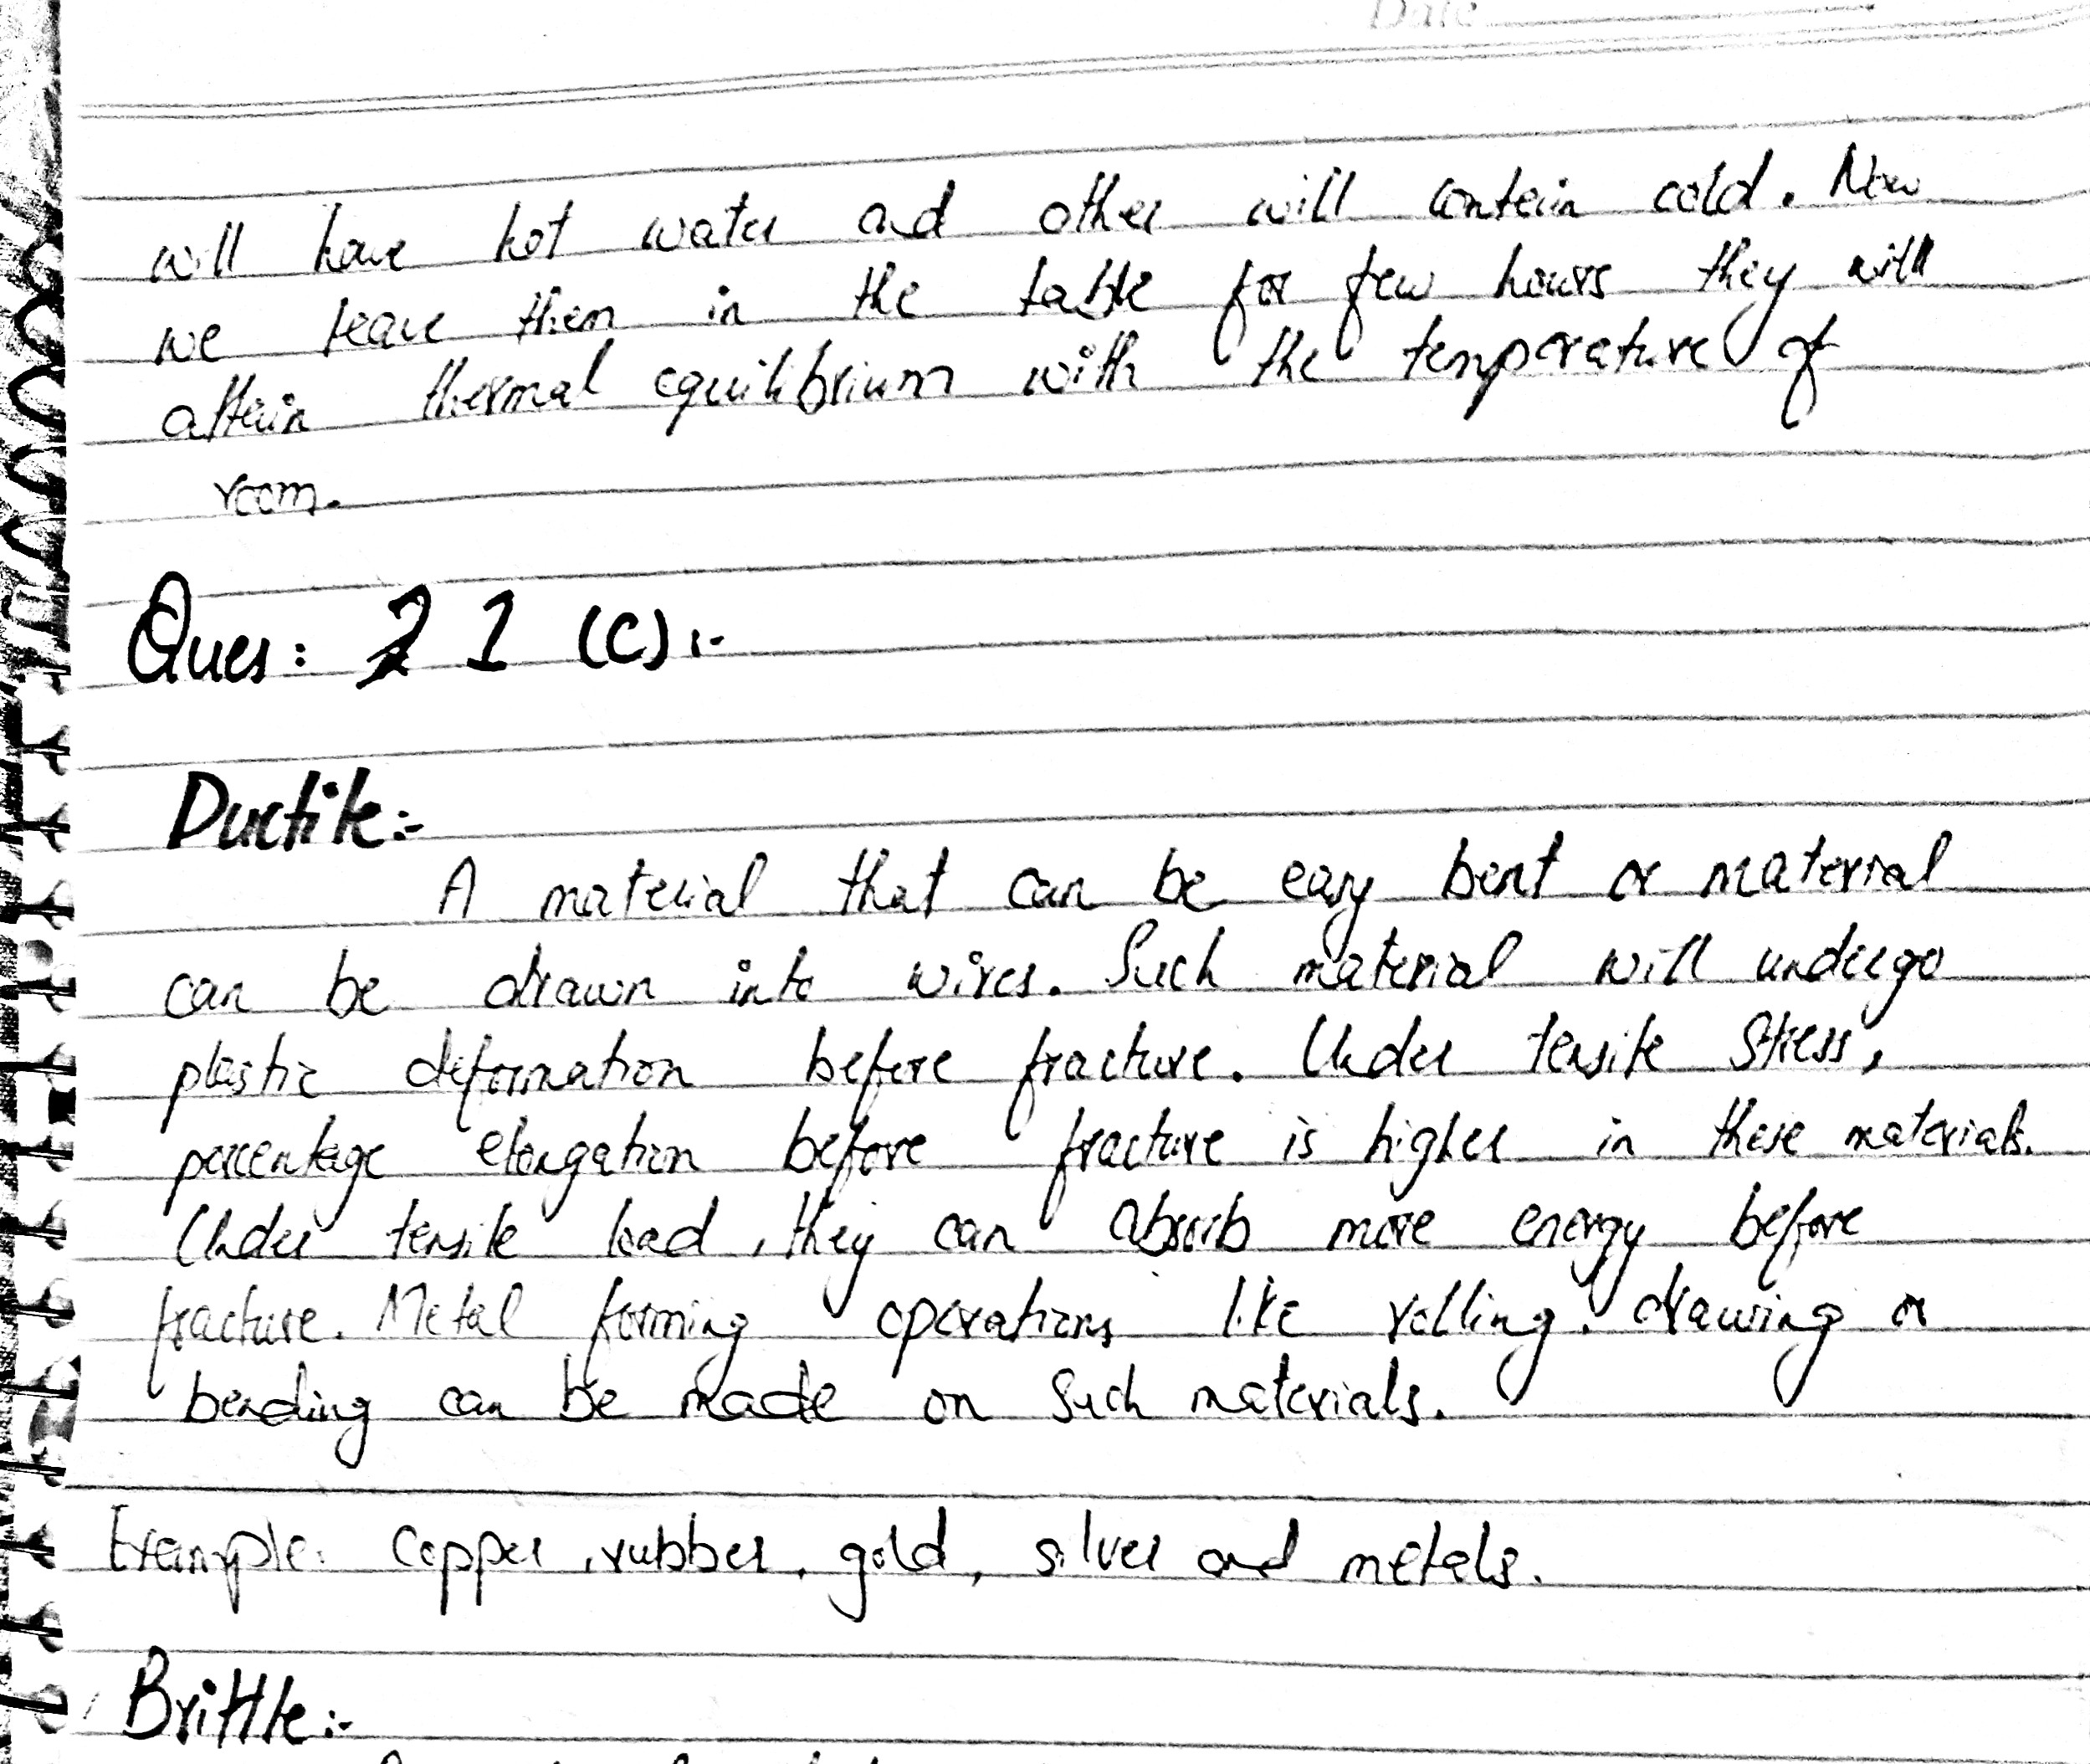 Date
will have hot water and other will contein cold. Now
we leave them in the table for few hours they will
attain thermal equilibrium with the temperature of
room.
Ques: 2 1 (C):-
Ductile:-
A material that can be easy bent or material
can be drawn into wires. Such material will undergo
plastic deformation before fracture. Under tensile stress,
percentage elongation before fracture is higher in these materials.
Under tensile load, they can absorb more energy before
fracture. Metal forming operations like rolling, drawing or
bending can be made on such materials.
Example: Copper, rubber, gold, silver and metals.
Brittle:-